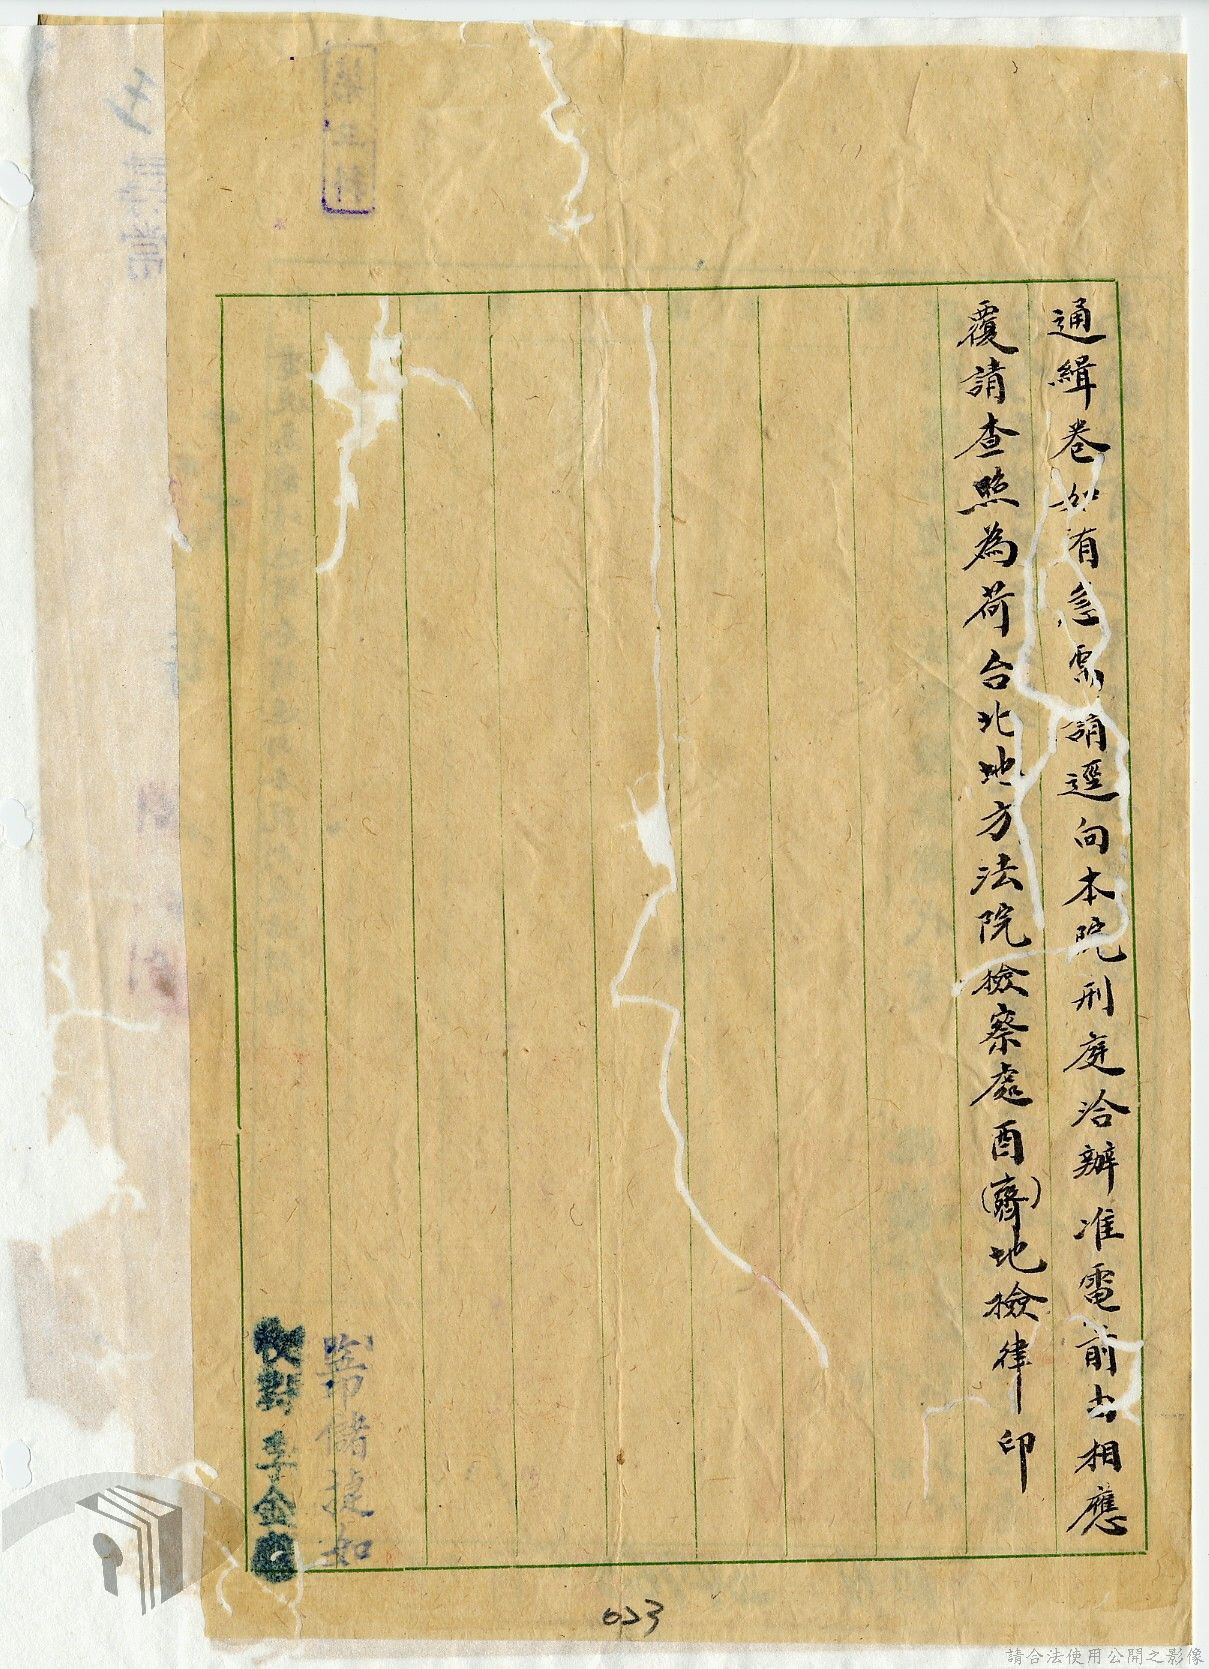 通緝卷如有急需請逕向本院刑庭洽辦准電前由相應
覆請查照為荷台北地方法院檢察處酉(齊)地檢律印
監印儲捷如
校對李金
023
請合法使用公開之影像